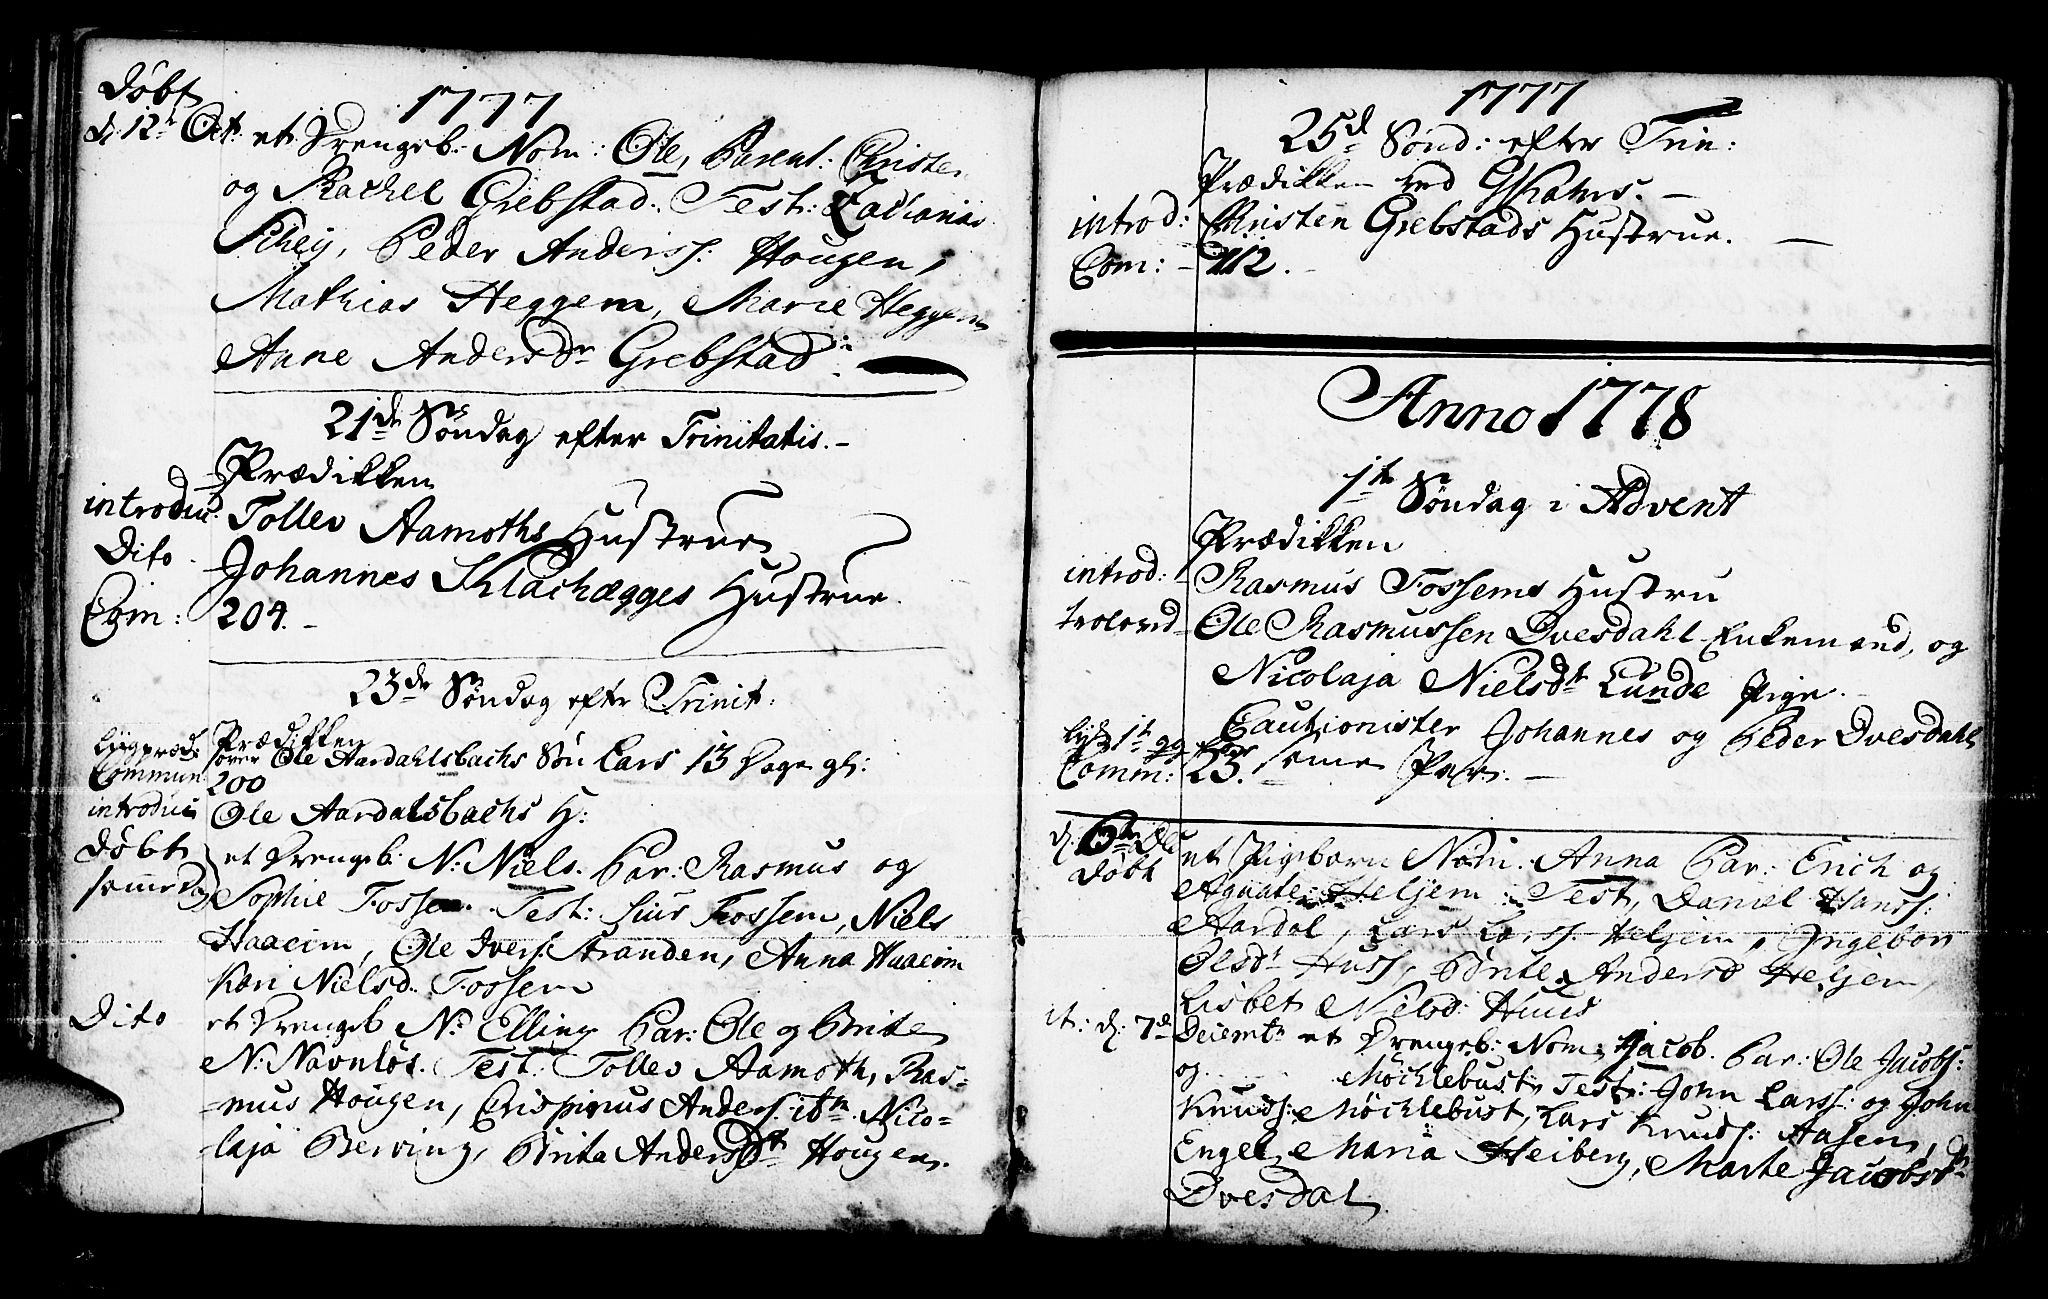 1777
Døbt
d. 12t Oct. et Drengeb. Nom: Ole, Parent: Christen
og Rachel Grebstad. Test: Zacharias
Schey, Peder Anderss: Hougen,
Mathias Heggem, Marie Heggem
Anne Andersdr Grebstad.
21de Søndag efter Trinitatis.
Prædikken
introdu. Tollev Aamoths Hustrue
Dito Johannes Klachægges Hustrue.
Com: 204.
23de Søndag efter Trinit:
Prædikken
Liigpræd. over Ole Aardahlsbachs Søn Lars 13 Dage gl:
Commun 200
introdu Ole Aardalsbachs H:
Døbt et Drengeb. N: Niels. Par: Rasmus og
samme D. Sophie Fossem. Test: Siur Fossem, Niels
Haaeim, Ole Ivers: Stranden, Anna Haaeim
Kari Nielsd. Fossem
Dito et Drengeb N: Elling Par: Ole og Brite
N: Navnløs. Test: Tollev Aamoth, Ras-
-mus Hougen, Crispinus Anders. itm Nico-
laja Berving, Brita Andersdt Hougen.
1777
25d Sønd: efter Trin:
Prædikken ved
introd: Christen Grebstads Hustrue.
Com: 112.
Anno 1778
1te Søndag i Advent
Prædikken
introd: Rasmus Fossems Hustru
trolovd Ole Rasmussen Øvesdahl Enkemand, og
Nicolaja Nielsdt Lunde Pige.
Cautionister Johannes og Peder Øvesdahl
1t gg for samme Par.
Comm: 23.
d. 6te Dec et Pigebarn Nom. Anna Par: Erich og
Døbt Agaate Heljem: Test, Daniel Hanss:
Aardal, Lars Larss. Heljem, Ingebor
Olsdt Huss, Brite Andersd Heljem,
Lisbet Nielsd: Huus
it: d: 7de Decembr et Drengeb: Nom: Jacob. Par: Ole Jacobs:
og Möchlebust, Test: John Larss: og John
Knuds: Möchlebust, Lars Knuds: Aasen,
Engel Maria Heiberg, Marte Jacobsdtr
Øvesdal